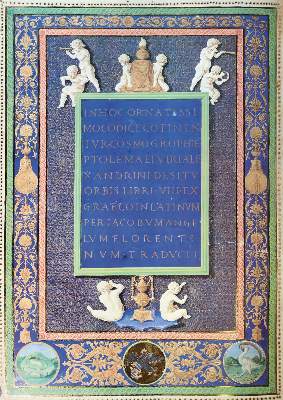 IN HOC ORNATISSI
MO CODICE CONTINEN
TUR COSMOGRAPHIE
PTOLEMAEI VIRI ALE
XANDRINI DE SITU
ORBIS LIBRI VIII EX
GRAECO IN LATINUM
PER IACOBUM ANGE
LUM FLORENTI
NUM TRADUCTI